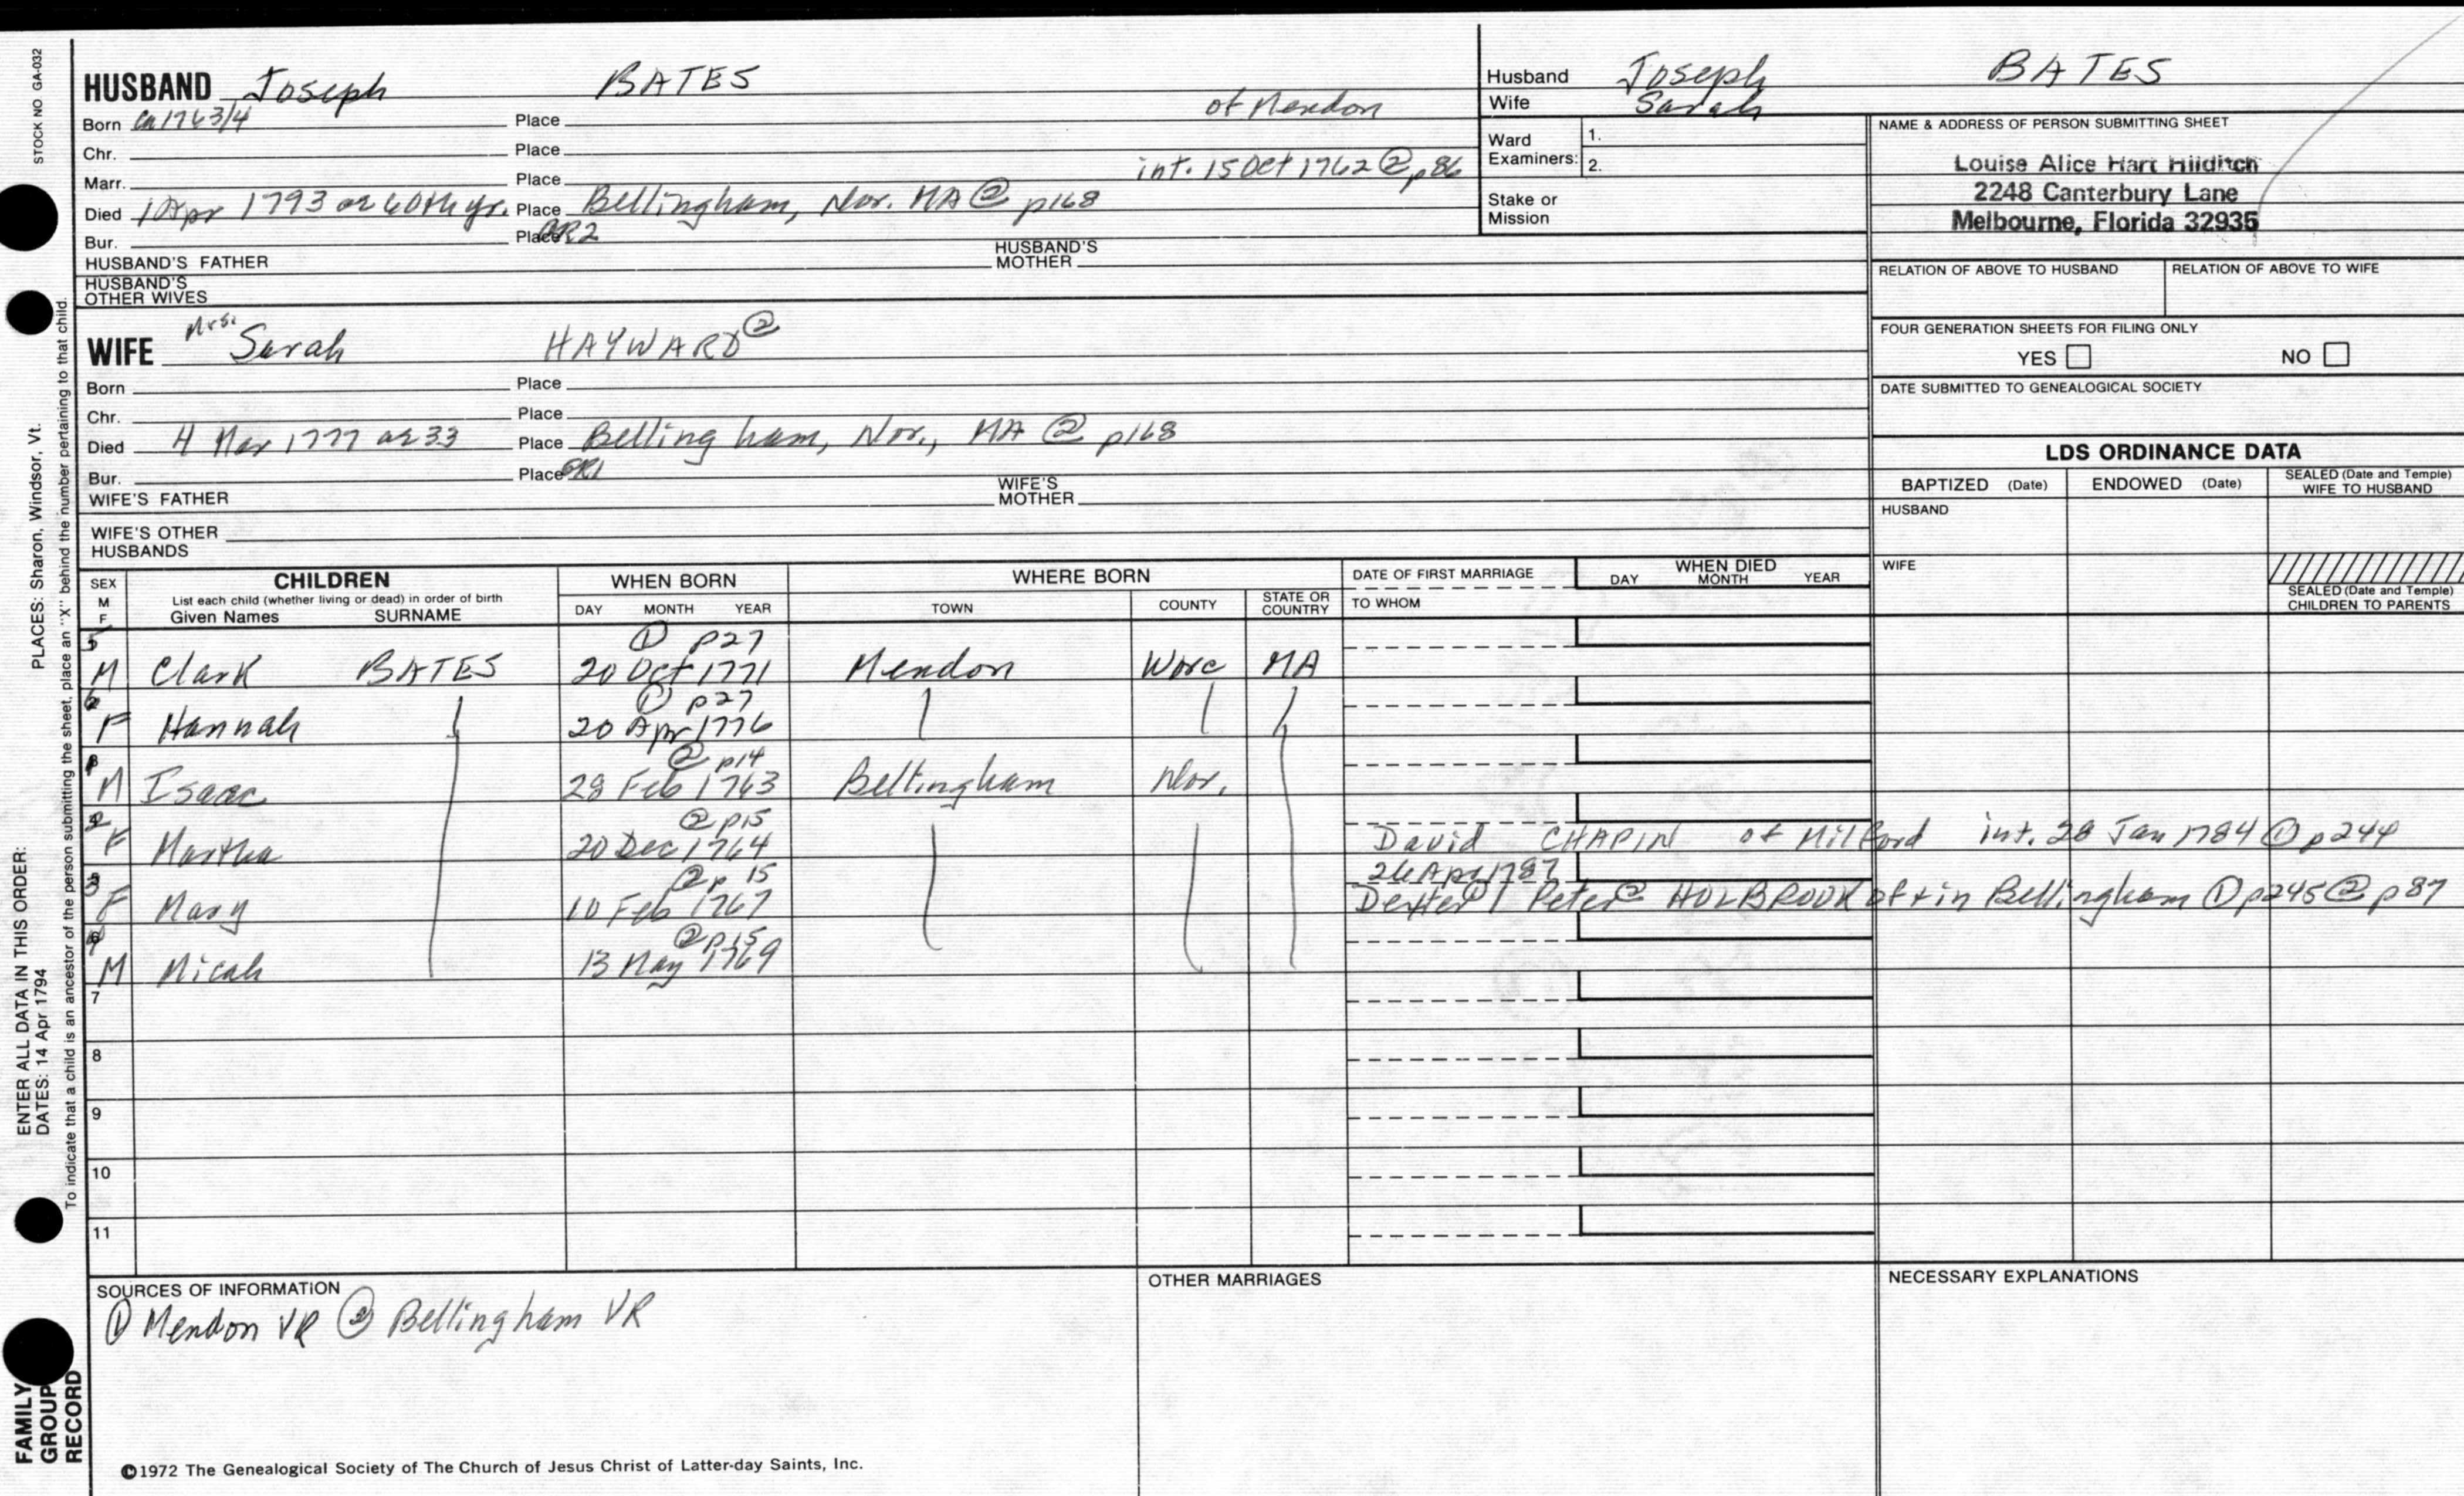 STOCK NO GA-032
HUSBAND Joseph BATES
Born Ca 1763/4 Place of Mendon
Chr. Place
Marr. Place int. 15 Oct 1762 @ p86
Died 1 Apr 1793 ae 60th yr. Place Bellingham, Nor. MA @ p168
Bur. Place GR2
HUSBAND'S FATHER HUSBAND'S MOTHER
HUSBAND'S OTHER WIVES
Husband Joseph BATES
Wife Sarah
Ward Examiners: 1.
2.
Stake or Mission
NAME & ADDRESS OF PERSON SUBMITTING SHEET
Louise Alice Hart Hilditch
2248 Canterbury Lane
Melbourne, Florida 32935
RELATION OF ABOVE TO HUSBAND RELATION OF ABOVE TO WIFE
FOUR GENERATION SHEETS FOR FILING ONLY
YES NO
DATE SUBMITTED TO GENEALOGICAL SOCIETY
WIFE Mrs. Sarah HAYWARD ②
Born Place
Chr. Place
Died 4 Mar 1777 ae 33 Place Bellingham, Nor., MA @ p168
Bur. Place GR1
WIFE'S FATHER WIFE'S MOTHER
WIFE'S OTHER HUSBANDS
LDS ORDINANCE DATA
BAPTIZED (Date) ENDOWED (Date) SEALED (Date and Temple) WIFE TO HUSBAND
HUSBAND
WIFE
SEALED (Date and Temple) CHILDREN TO PARENTS
SEX M F CHILDREN
List each child (whether living or dead) in order of birth
Given Names SURNAME
WHEN BORN
DAY MONTH YEAR
WHERE BORN
TOWN COUNTY STATE OR COUNTRY
DATE OF FIRST MARRIAGE
TO WHOM
WHEN DIED
DAY MONTH YEAR
① p27
5 M Clark BATES 20 Oct 1771 Mendon Worc MA
① p27
6 F Hannah 20 Apr 1776
② p14
1 M Isaac 28 Feb 1763 Bellingham Nor.
② p15
2 F Martha 20 Dec 1764 David CHAPIN of Milford int. 28 Jan 1784 ① p244
② p 15 26 Apr 1787
3 F Mary 10 Feb 1767 Dexter ① / Peter ② HOLBROOK of + in Bellingham ① p245 ② p87
② p15
4 M Micah 13 May 1769
7
8
9
10
11
SOURCES OF INFORMATION
① Mendon VR ② Bellingham VR
OTHER MARRIAGES
NECESSARY EXPLANATIONS
©1972 The Genealogical Society of The Church of Jesus Christ of Latter-day Saints, Inc.
ENTER ALL DATA IN THIS ORDER:
DATES: 14 Apr 1794 PLACES: Sharon, Windsor, Vt.
To indicate that a child is an ancestor of the person submitting the sheet, place an "X" behind the number pertaining to that child.
FAMILY GROUP RECORD